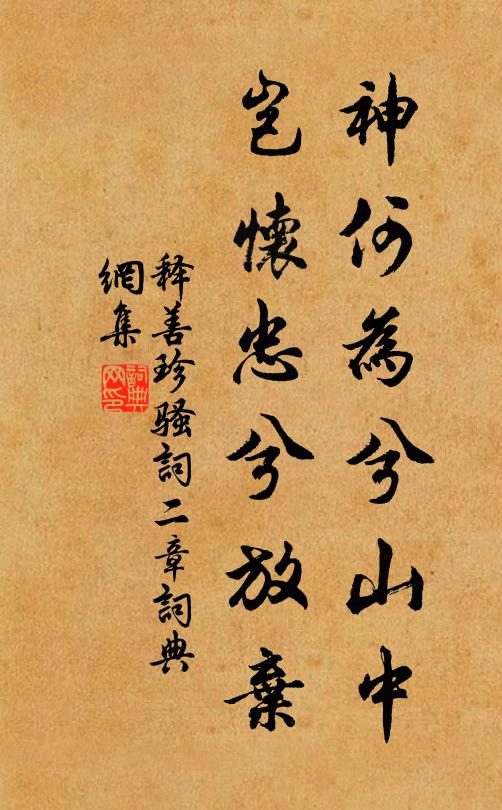 神何為兮山中
岂懷忠兮放棄
释善珍騷詞二章詞典
網集
詞典网印